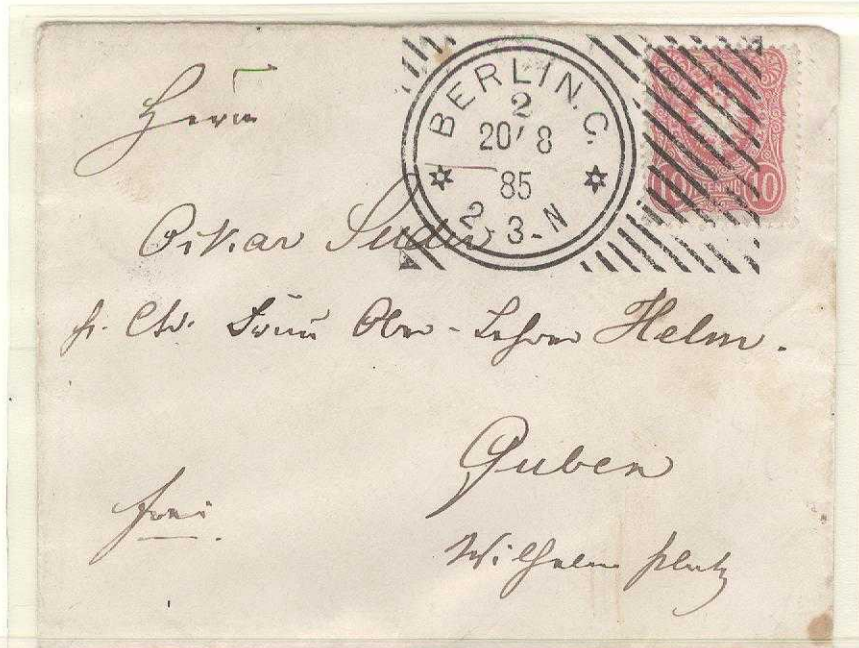 Herrn
BERLIN. C.
2
20/8
85
2-3-N
10 PFENNIG 10
Oskar
Frau Ober-Lehrer Helm.
Guben
frei
Wilhelm platz